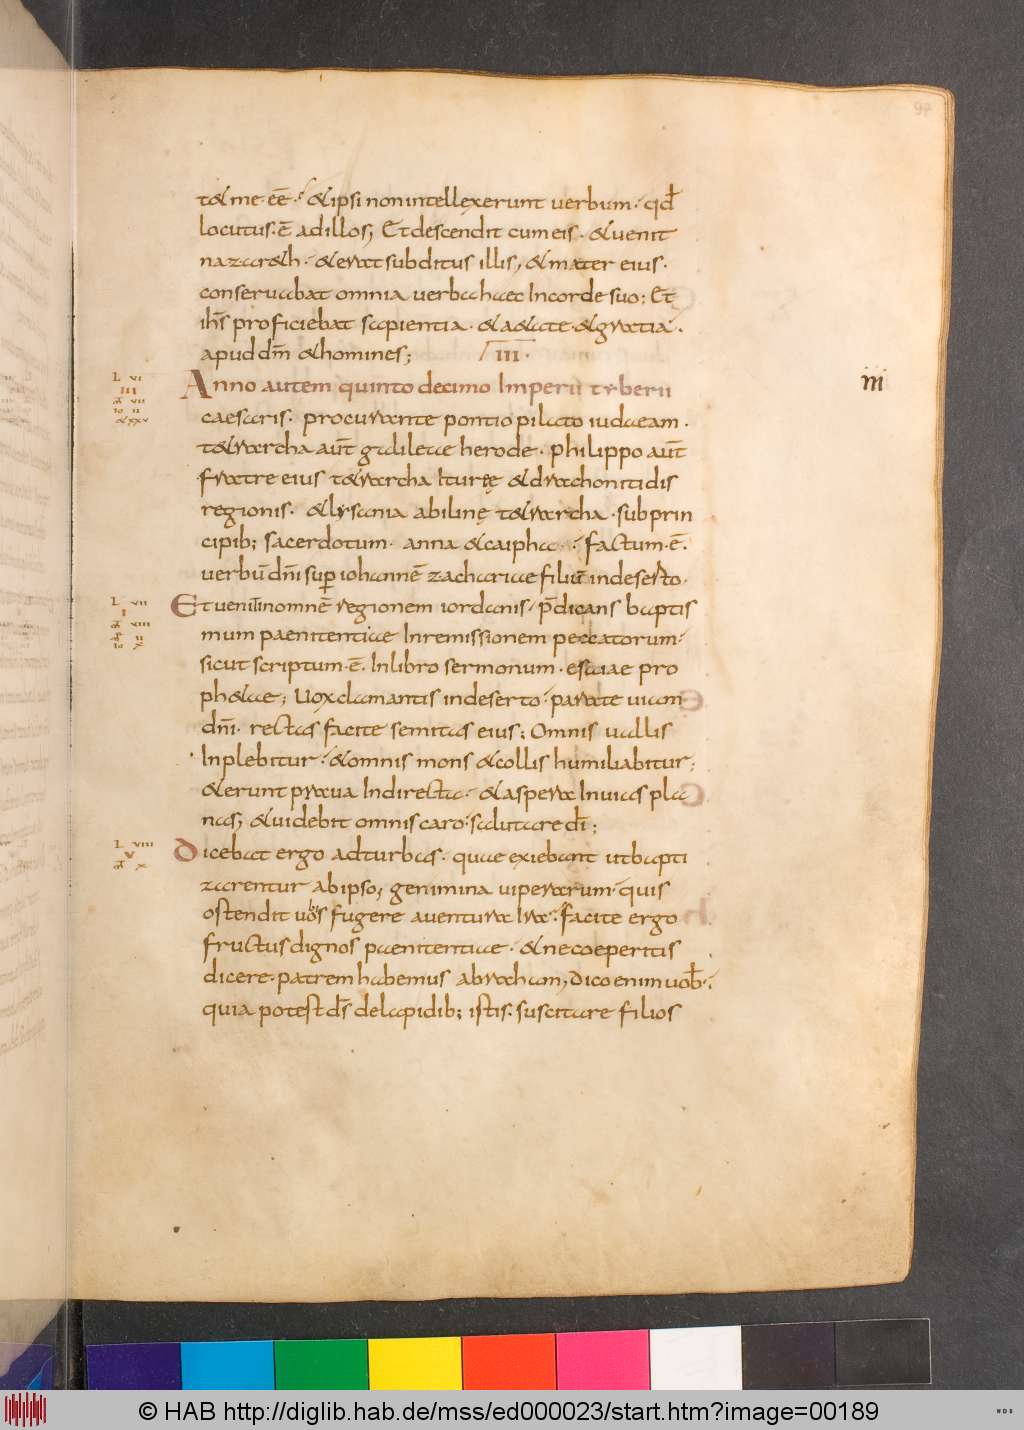 94
t&me·eē·' &ipsi nonintellexerunt uerbum·' qđ
locutus·ē adillos, Etdescendit cumeis· &uenit
nazar&h·' &erat subditus illis, &mater eius·
conseruabat omnia uerbahaec Incorde suo: Et
ih̄s proficiebat sapientia· &a&ate·&gratia·
apud dm̄ &homines; III·
Anno autem quinto decimo Imperii tyberii
iii
L vi
III
caesaris· procurante pontio pilato iudaeam·
t&rarcha aut̄ galileae herode· philippo aut̄
fratre eius t&rarcha Ituręę &drachonitidis
regionis· &lysania abilinę t&rarcha· subprin
cipib; sacerdotum· anna &caipha·' factum·ē·
uerbū dn̄i sup iohannē zachariae filiū indeserto·
L vii
I
Et uenit inomnē regionem iordanis·' p̄dicans baptis
mum paenitentiae Inremissionem peccatorum·'
sicut scriptum·ē· Inlibro sermonum· esaiae pro
ph&ae; Uox clamantis indeserto·' parate uiam
dn̄i· rectas facite semitas eius; Omnis uallis
Inplebitur·' &omnis mons &collis humiliabitur;
&erunt praua Indirecta·' &aspera Inuias pla
nas, &uidebit omnis caro·' salutare dī;
L viii
V
Dicebat ergo adturbas· quae exiebant utbapti
zarentur abipso, genimina uiperarum·' quis
ostendit uobis fugere auentura Ira·' facite ergo
fructus dignos paenitentiae· &ne coeperitis
dicere·patrem habemus abraham, Dico enim uob·'
quia potest ds̄ delapidib; istis· suscitare filios
© HAB http://diglib.hab.de/mss/ed000023/start.htm?image=00189